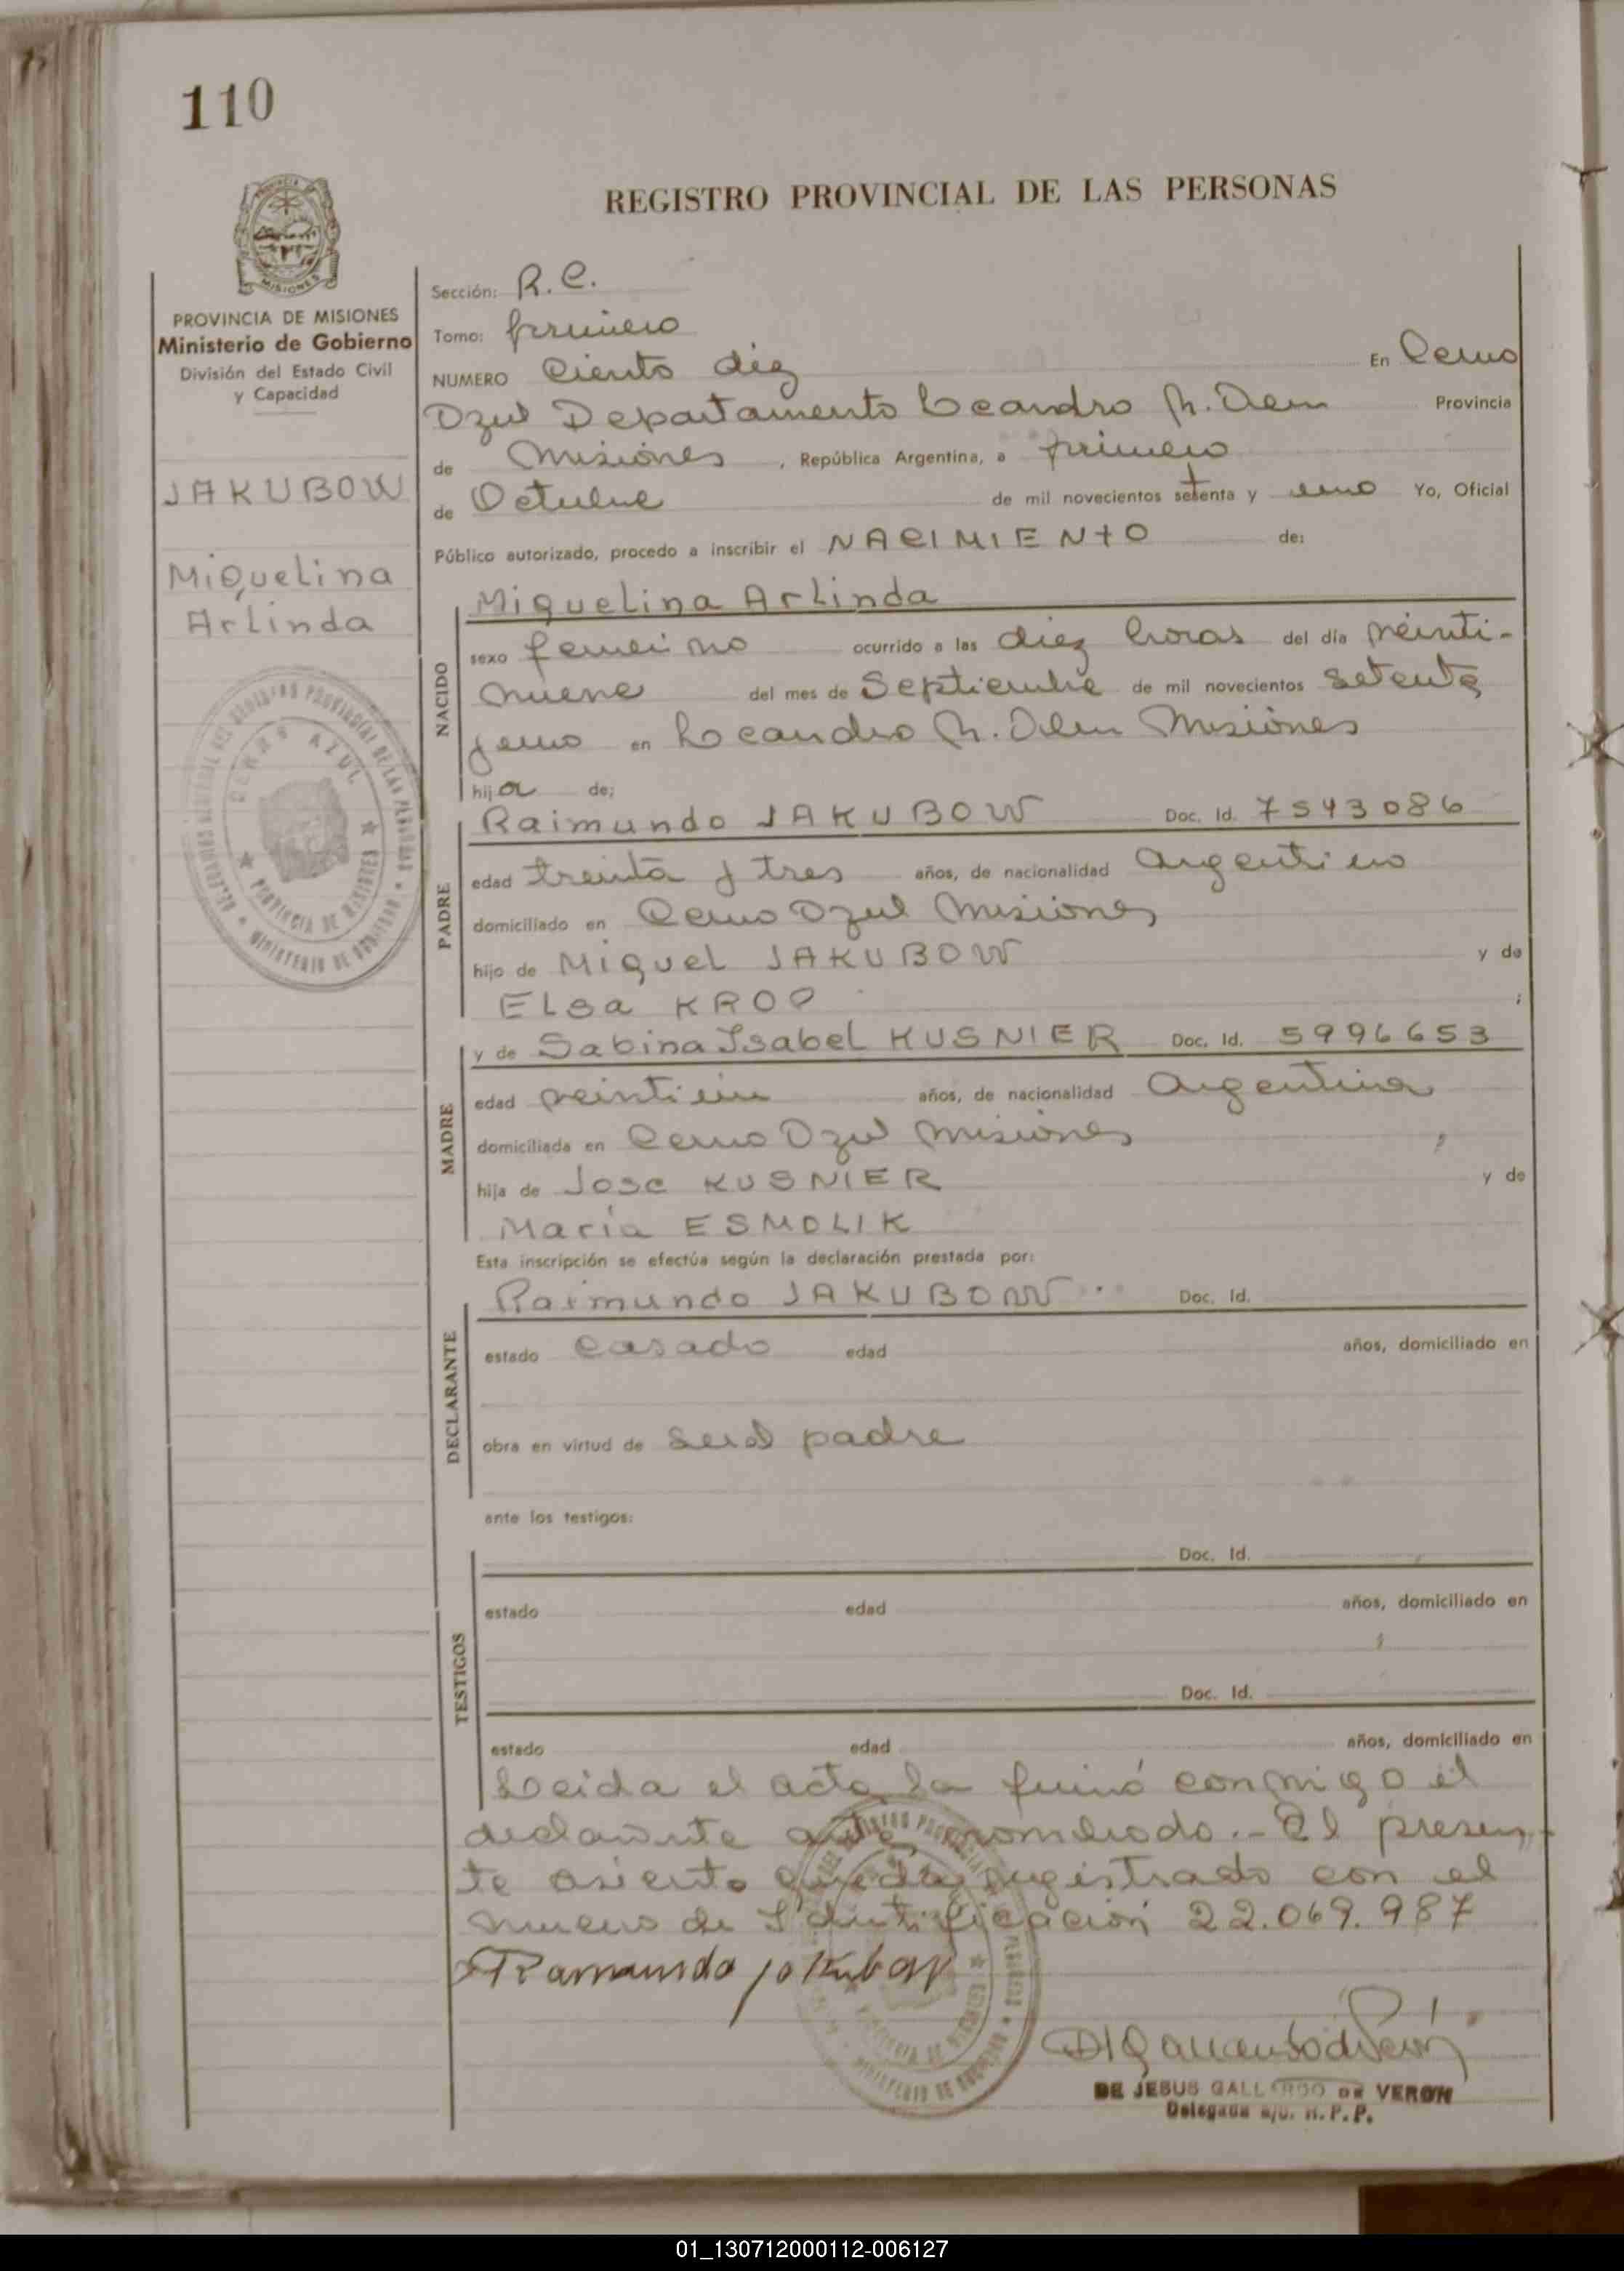 110
MISIONES
REGISTRO PROVINCIAL DE LAS PERSONAS
PROVINCIA DE MISIONES
Ministerio de Gobierno
División del Estado Civil
y Capacidad
JAKUBOW
Miquelina
Arlinda
Sección: R.C.
Tomo: primero
NUMERO Ciento diez En Cerro
Azul Departamento Leandro N. Alem Provincia
de Misiones, República Argentina, a primero
de Octubre de mil novecientos setenta y uno Yo, Oficial
Público autorizado, procedo a inscribir el NACIMIENTO de:
NACIDO
Miquelina Arlinda
sexo femenino ocurrido a las diez horas del día veinti-
nueve del mes de Septiembre de mil novecientos setenta
y uno en Leandro N. Alem Misiones
hija de:
PADRE
Raimundo JAKUBOW Doc. Id. 7543086
edad treinta y tres años, de nacionalidad argentino
domiciliado en Cerro Azul Misiones
hijo de Miguel JAKUBOW y de
Elsa KROP ;
MADRE
y de Sabina Isabel KUSNIER Doc. Id. 5996653
edad veintiun años, de nacionalidad argentina
domiciliada en Cerro Azul Misiones ,
hija de Jose KUSNIER y de
María ESMOLIK
Esta inscripción se efectúa según la declaración prestada por:
DECLARANTE
Raimundo JAKUBOW Doc. Id.
estado casado edad años, domiciliado en
obra en virtud de ser el padre
ante los testigos:
TESTIGOS
Doc. Id.
estado edad años, domiciliado en
Doc. Id.
estado edad años, domiciliado en
Leida el acta la firmó conmigo el
declarante ante nombrado.- El presen-
te asiento queda registrado con el
numero de Identificación 22.069.987
Ramaundo jakubow
DE JESUS GALLARDO DE VERON
Delegada a/c. R.P.P.
CERRO AZUL
PROVINCIA DE MISIONES
MINISTERIO DE GOBIERNO
01_130712000112-006127